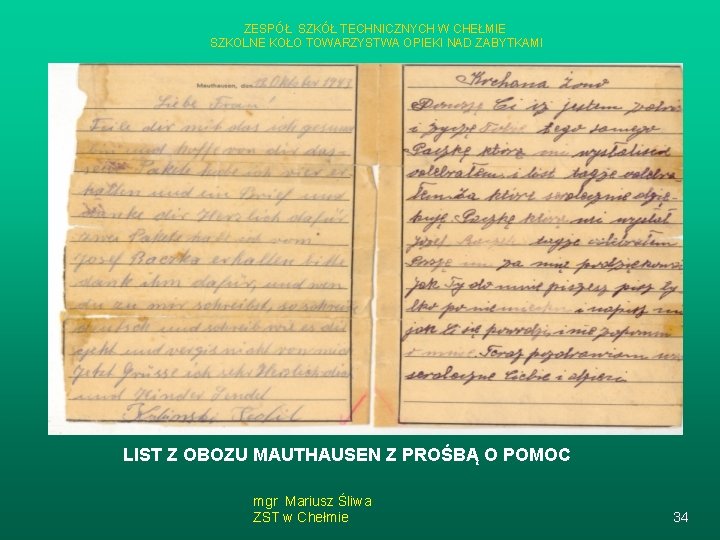 ZESPÓŁ SZKÓŁ TECHNICZNYCH W CHEŁMIE
SZKOLNE KOŁO TOWARZYSTWA OPIEKI NAD ZABYTKAMI
Mauthausen, den 12. Oktober 1943
Liebe Frau!
Teile dir mit das ich gesund
bin und hoffe von dir das-
selbe. Pakete habe ich vier er
halten und ein Brief und
danke dir Herzlich dafür
zwei Pakete hab ich vom
Josef Baczka erhalten bitte
dank ihm dafür, und wen
du zu mir schreibst, so schreibe
deutsch und schreib wie es dir
geht und vergis nicht von mir
Jetzt Grüsse ich sehr Herzlich dich
und Kinder
Teofil
Kochana żono
Donoszę Ci iż jestem zdrów
i życzę Tobie tego samego
Paczkę którą mi wysłaliście
odebrałem i list także odebra
łem za które serdecznie dzię-
kuję Paczkę którą mi wysłał
Józef także odebrałem
Proszę mu za mnie podziękować
jak Ty do mnie piszesz pisz ty
lko po niemiecku i napisz mi
jak Ci się powodzi i nie zapomni
o mnie Teraz pozdrawiam
serdecznie Ciebie i dzieci
LIST Z OBOZU MAUTHAUSEN Z PROŚBĄ O POMOC
mgr Mariusz Śliwa
ZST w Chełmie
34